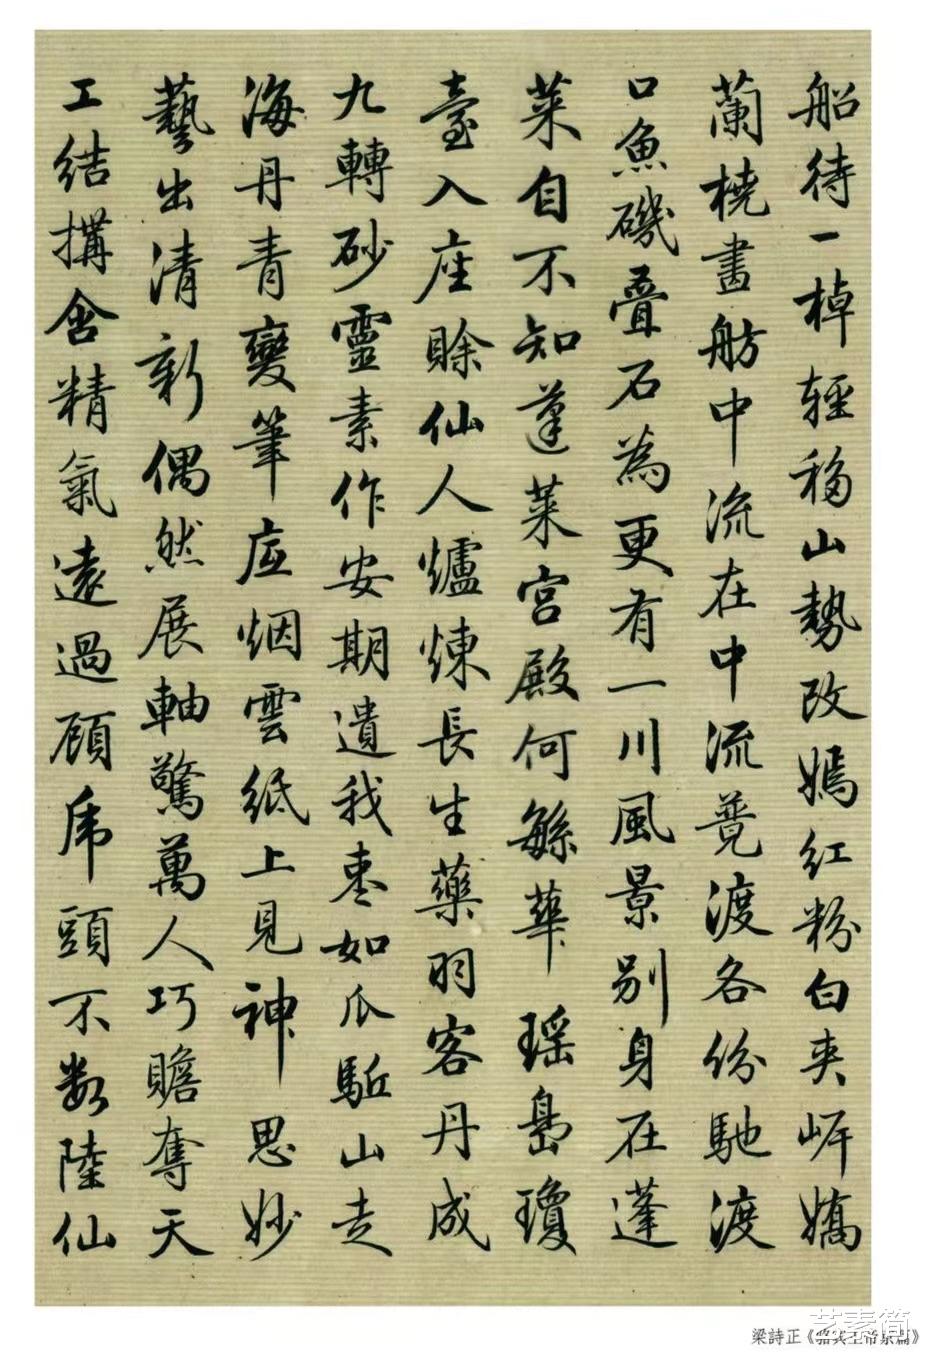 船待一棹輕移山勢改嫣紅粉白夾岸嬌
蘭橈畫舫中流在中流競渡各份馳渡
口魚磯疊石為更有一川風景別身在蓬
萊自不知蓬萊宮殿何繇華瑤島瓊
臺入座賒仙人爐煉長生藥羽客丹成
九轉砂靈素作安期遺我棗如瓜駈山走
海丹青變筆底烟雲紙上見神思妙
藝出清新偶然展軸驚萬人巧贍奪天
工結搆含精氣遠過顧虎頭不數陸仙
梁詩正《駱賓王帝京篇》
艺素简